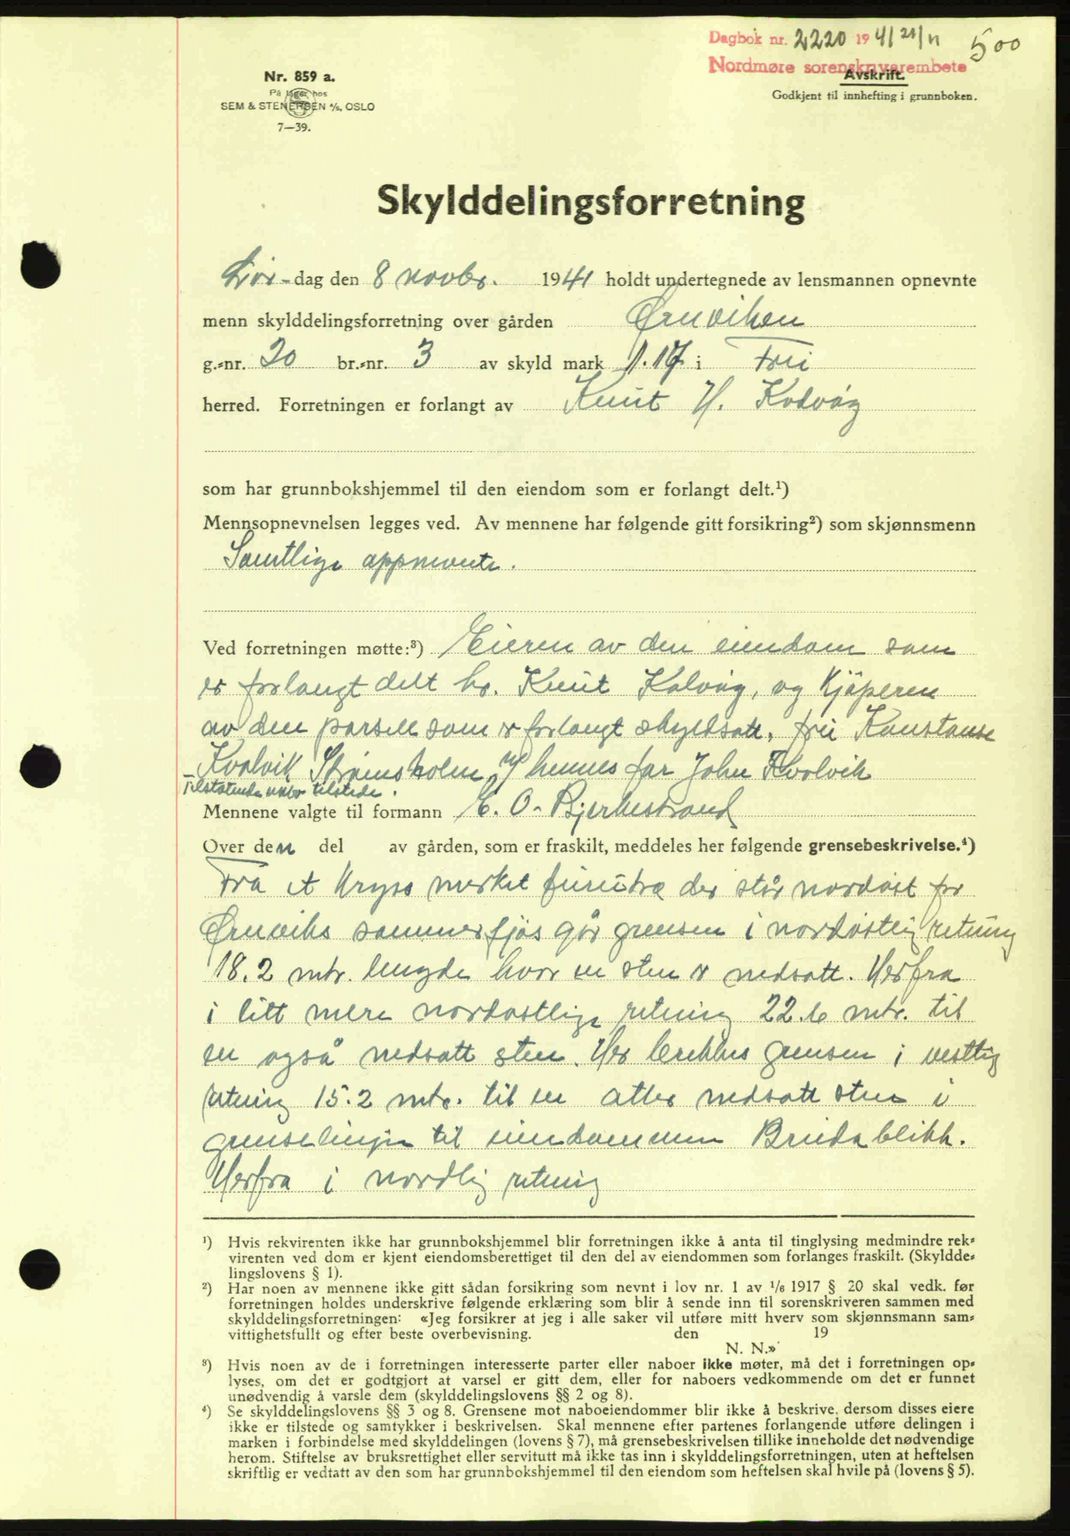 Dagbok nr. 2220 1941 21/11 500
Nordmøre sorenskriverembete
Avskrift.
Godkjent til innhefting i grunnboken.
Nr. 859 a.
På lager hos
SEM & STENERSEN A/S, OSLO
7—39.
Skylddelingsforretning
Lør-dag den 8 novbr. 1941 holdt undertegnede av lensmannen opnevnte
menn skylddelingsforretning over gården Ørnviken
g.-nr. 20 br.-nr. 3 av skyld mark 1.17 i Frei
herred. Forretningen er forlangt av Knut H. Kvalvåg
som har grunnbokshjemmel til den eiendom som er forlangt delt.¹)
Mennsopnevnelsen legges ved. Av mennene har følgende gitt forsikring²) som skjønnsmenn
Samtlige oppnevnte.
Ved forretningen møtte:³) Eieren av den eiendom som
er forlangt delt hr. Knut Kalvåg, og Kjøperen
av den parsell som er forlangt skyldsatt, fru Konstanse
Kvalvik Strømsholm v/ hennes far John Kvalvik
Tilstøtende naboer tilstede.
Mennene valgte til formann E. O. Bjerkestrand
Over den del av gården, som er fraskilt, meddeles her følgende grensebeskrivelse.⁴)
Fra et kryss merket furutre der står nordøst for
Ørnviks sommerfjøs går grensen i nordøstlig retning
18.2 mtr. lengde hvor en sten er nedsatt. Herfra
i litt mere nordøstlige retning 22.6 mtr. til
en også nedsatt sten. Her brekkes grensen i vestlig
retning 15.2 mtr. til en atter nedsatt sten i
grenselinjen til eiendommen Breidablikk.
Herfra i nordlig retning
¹) Hvis rekvirenten ikke har grunnbokshjemmel blir forretningen ikke å anta til tinglysing medmindre rek-
virenten ved dom er kjent eiendomsberettiget til den del av eiendommen som forlanges fraskilt. (Skyldde-
lingslovens § 1).
²) Har noen av mennene ikke gitt sådan forsikring som nevnt i lov nr. 1 av 1/6 1917 § 20 skal vedk. før
forretningen holdes underskrive følgende erklæring som blir å sende inn til sorenskriveren sammen med
skylddelingsforretningen: «Jeg forsikrer at jeg i alle saker vil utføre mitt hverv som skjønnsmann sam-
vittighetsfullt og efter beste overbevisning. den 19
N. N.»
³) Hvis noen av de i forretningen interesserte parter eller naboer ikke møter, må det i forretningen op-
lyses, om det er godtgjort at varsel er gitt dem, eller for naboers vedkommende om det er funnet
unødvendig å varsle dem (skylddelingslovens §§ 2 og 8).
⁴) Se skylddelingslovens §§ 3 og 8. Grensene mot naboeiendommer blir ikke å beskrive, dersom disses eiere
ikke er tilstede og samtykker i beskrivelsen. Skal mennene efter partenes forlangende utføre delingen i
marken i forbindelse med skylddelingen (lovens § 7), må grensebeskrivelsen tillike inneholde det nødvendige
herom. Stiftelse av bruksrettighet eller servitutt må ikke tas inn i skylddelingsforretningen, uten at heftelsen
skriftlig er vedtatt av den som har grunnbokshjemmel til den eiendom som heftelsen skal hvile på (lovens § 5).